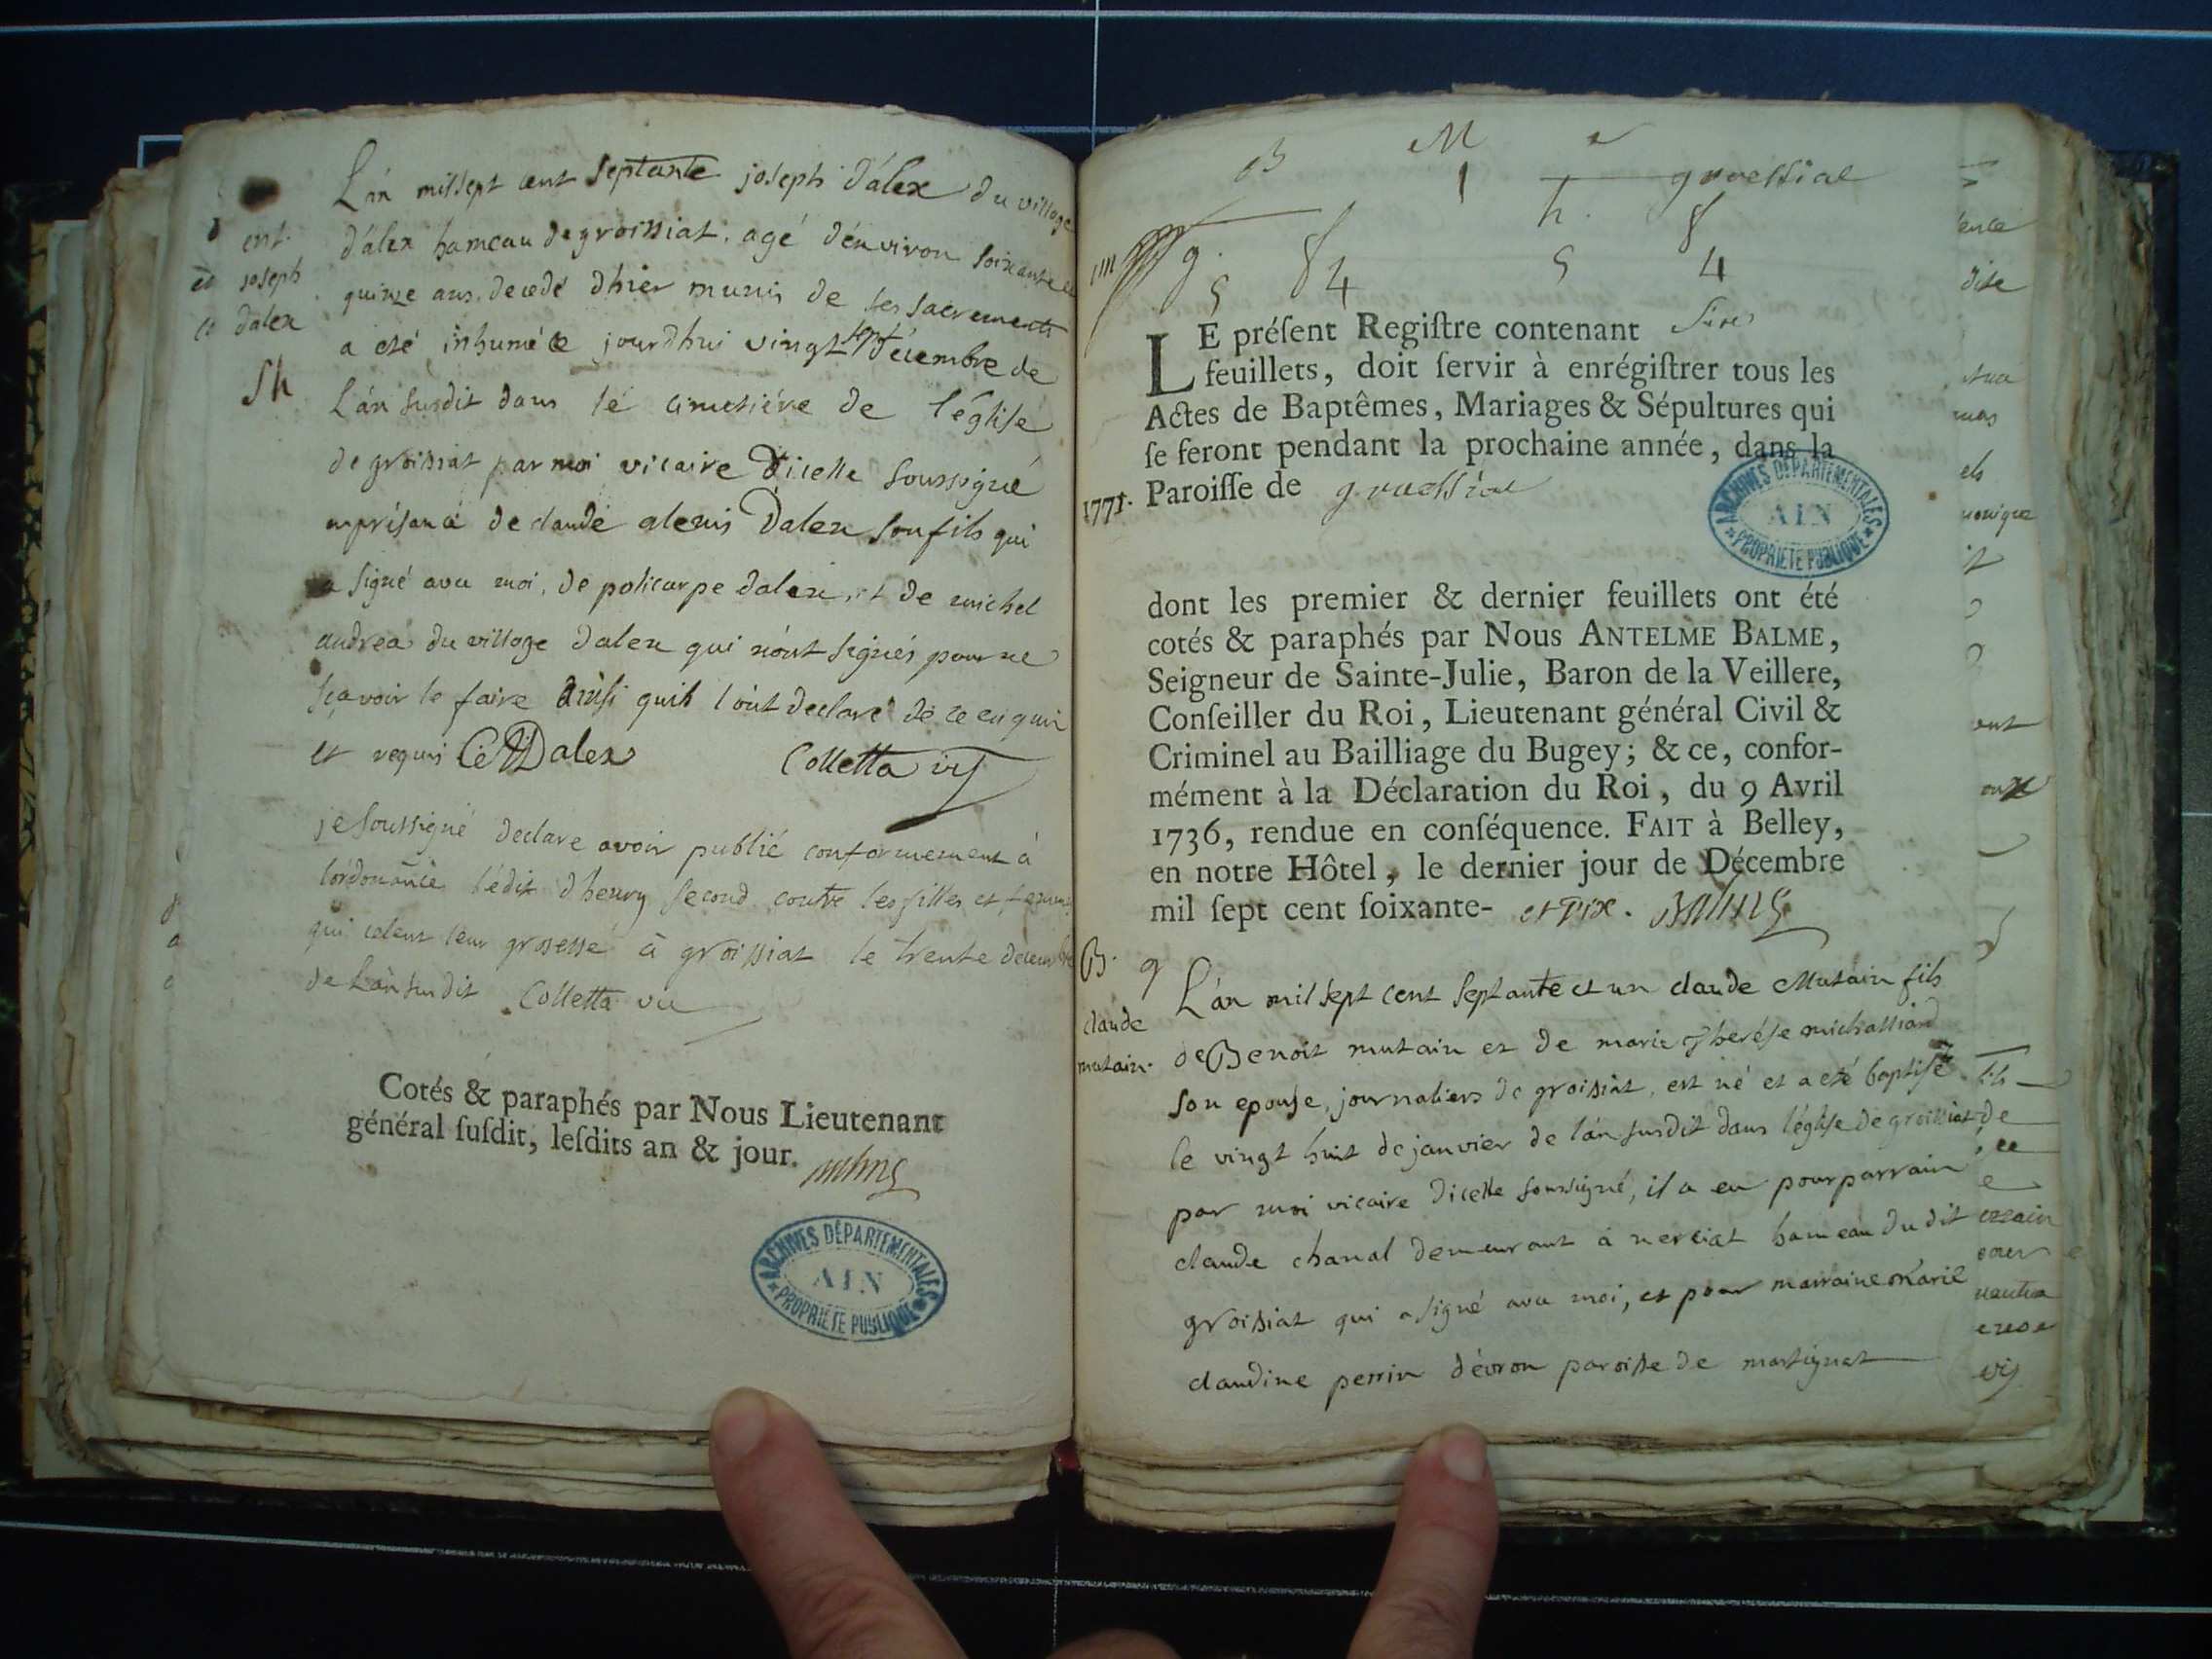 L'an mil sept cent septante joseph d'alex du village
ent. d'alex hameau de groissiat, agé d'environ soixante et
joseph quinze ans, decedé d'hier munis de ses sacrements
dalex a eté inhumé ce jourdhui vingt sept decembre de
Sh L'an susdit dans le cimetiére de l'église
de groissiat par moi vicaire d'icelle soussigné
en présance de claude alexis Dalex son fils qui
a signé avec moi, de policarpe dalex, et de michel
andrea du village dalex qui n'ont signés pour ne
sçavoir le faire ainsi quils l'ont declaré de ce enquis
et requis C A Dalex Colletta vis
je soussigné declare avoir publié conformement à
l'ordonance l'édit d'henry second contre les filles et femmes
qui celent leur grosesse à groissiat le trente decembre
de L'an susdit Colletta vic
Cotés & paraphés par Nous Lieutenant
général susdit, lesdits an & jour.
ARCHIVES DÉPARTEMENTALES
AIN
PROPRIÉTÉ PUBLIQUE
B M
1 groessiat
g. 8 h. 8
5 4 5 4
LE présent Registre contenant Six
feuillets, doit servir à enrégistrer tous les
Actes de Baptêmes, Mariages & Sépultures qui
se feront pendant la prochaine année, dans la
1771. Paroisse de groessiat
ARCHIVES DÉPARTEMENTALES
AIN
PROPRIÉTÉ PUBLIQUE
dont les premier & dernier feuillets ont été
cotés & paraphés par Nous ANTELME BALME,
Seigneur de Sainte-Julie, Baron de la Veillere,
Conseiller du Roi, Lieutenant général Civil &
Criminel au Bailliage du Bugey; & ce, confor-
mément à la Déclaration du Roi, du 9 Avril
1736, rendue en conséquence. FAIT à Belley,
en notre Hôtel, le dernier jour de Décembre
mil sept cent soixante- et dix. Balme
B. g L'an mil sept cent septante et un claude Mutain fils
claude de Benoit mutain et de marie therése michalliard
mutain. son epouse, journaliers de groissiat, est né et a eté baptisé
le vingt huit de janvier de l'an susdit dans l'église de groissiat
par moi vicaire d'icelle soussigné, il a eu pour parrain
claude chanal demeurant à nerciat hameau du dit
groissiat qui a signé avec moi, et pour marraine marie
claudine perrin d'évron paroisse de martignat